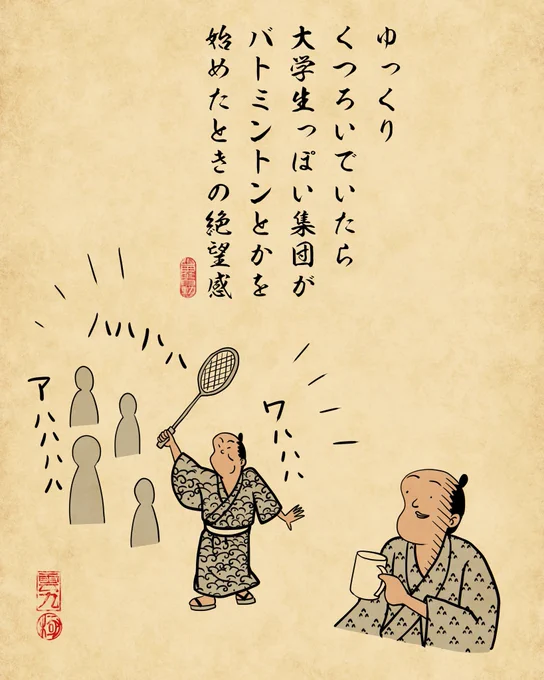 ゆっくり
くつろいでいたら
大学生っぽい集団が
バトミントンとかを
始めたときの絶望感
ハハハハ
アハハハハ
ワハハハ